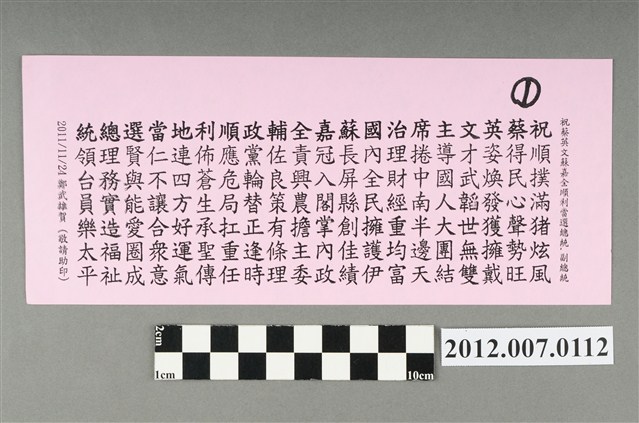 ①
祝蔡英文蘇嘉全順利當選總統、副總統
祝順撲滿猪炫風
蔡得民心聲勢旺
英姿煥發獲擁戴
文才武韜世無雙
主導國人大團結
席捲中南半邊天
治理財經重均富
國內全民擁護伊
蘇長屏縣創佳績
嘉冠入閣掌內政
全責興農擔主委
輔佐良策有條理
政黨輪替正逢時
順應危局扛重任
利佈蒼生承聖傳
地連四方好運氣
當仁不讓合眾意
選賢與能愛圈成
總理務實造福祉
統領台員樂太平
2011/11/21 鄭武雄賀（敬請助印）
2cm
1cm
10cm
2012.007.0112